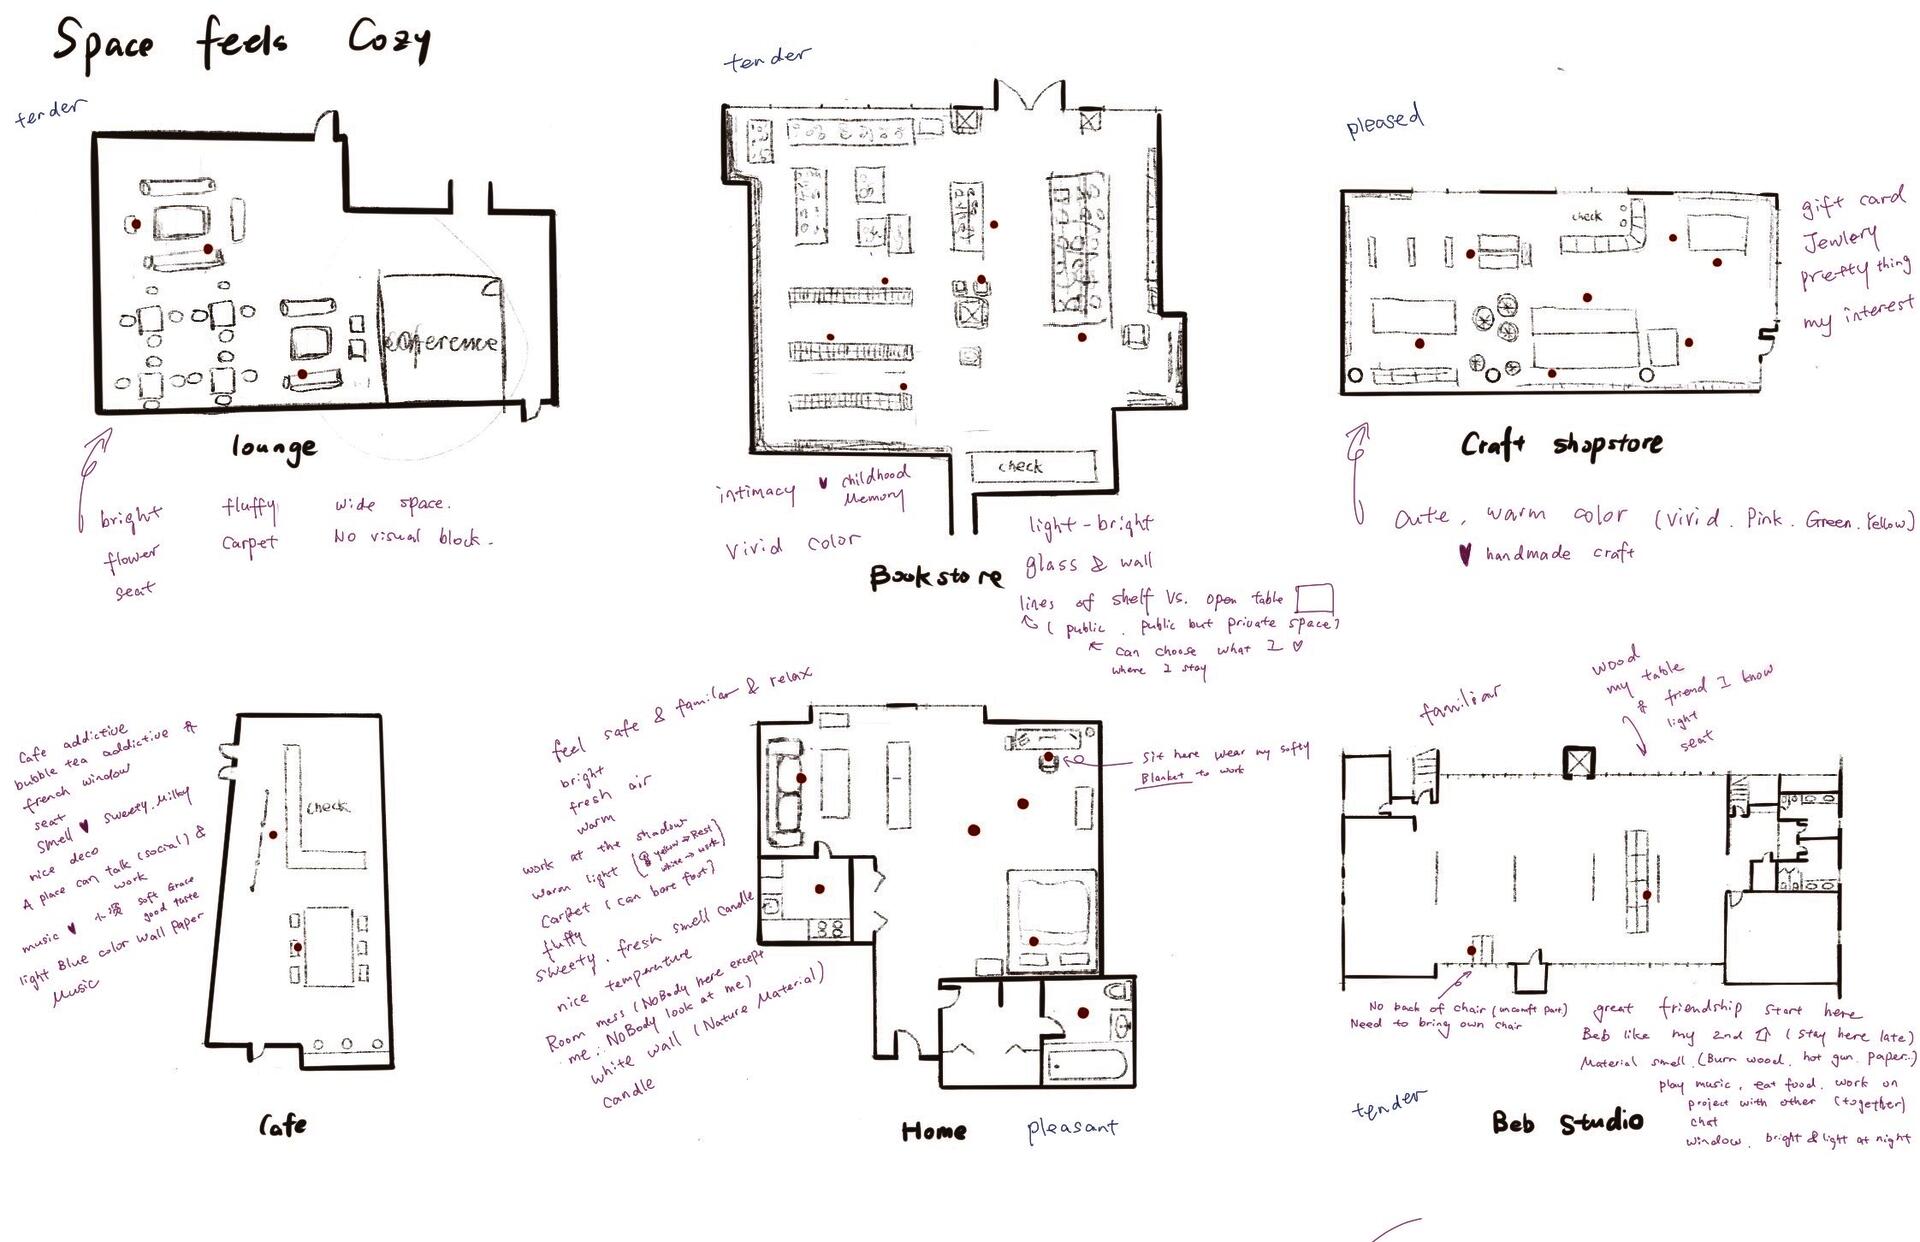 Space feels Cozy
tender
conference
lounge
bright
flower
seat
fluffy
carpet
wide space.
No visual block.
tender
check
intimacy ♥ childhood
Memory
Vivid color
Bookstore
light-bright
glass & wall
lines of shelf Vs. open table
(public. public but private space)
can choose what I ♡
where I stay
pleased
check
gift card
Jewlery
pretty thing
my interest
Craft shopstore
Cute. warm color (vivid. Pink. Green. Yellow)
♥ handmade craft
Cafe addictive
bubble tea addictive
french window
seat
smell ♥ sweety. Milky
nice deco
A place can talk (social) &
work
music ♥ soft Grace
good taste
light Blue color wall paper
Music
check
Cafe
feel safe & familar & relax
bright
fresh air
warm
work at the shadow
warm light (yellow → Rest
white → work)
Carpet (can bare foot)
fluffy
sweety. fresh smell candle
nice temperature
Room mess (NoBody here except
me ∴ NoBody look at me)
white wall (Nature Material)
candle
Sit here wear my softy
Blanket to work
Home
pleasant
familiar
wood
my table
& friend I know
light
seat
No back of chair (uncomft part)
Need to bring own chair
tender
Beb Studio
great friendship start here
Beb like my 2nd (stay here late)
Material smell. (Burn wood. hot gun. paper..)
play music. eat food. work on
project with other (together)
chat
window. bright & light at night